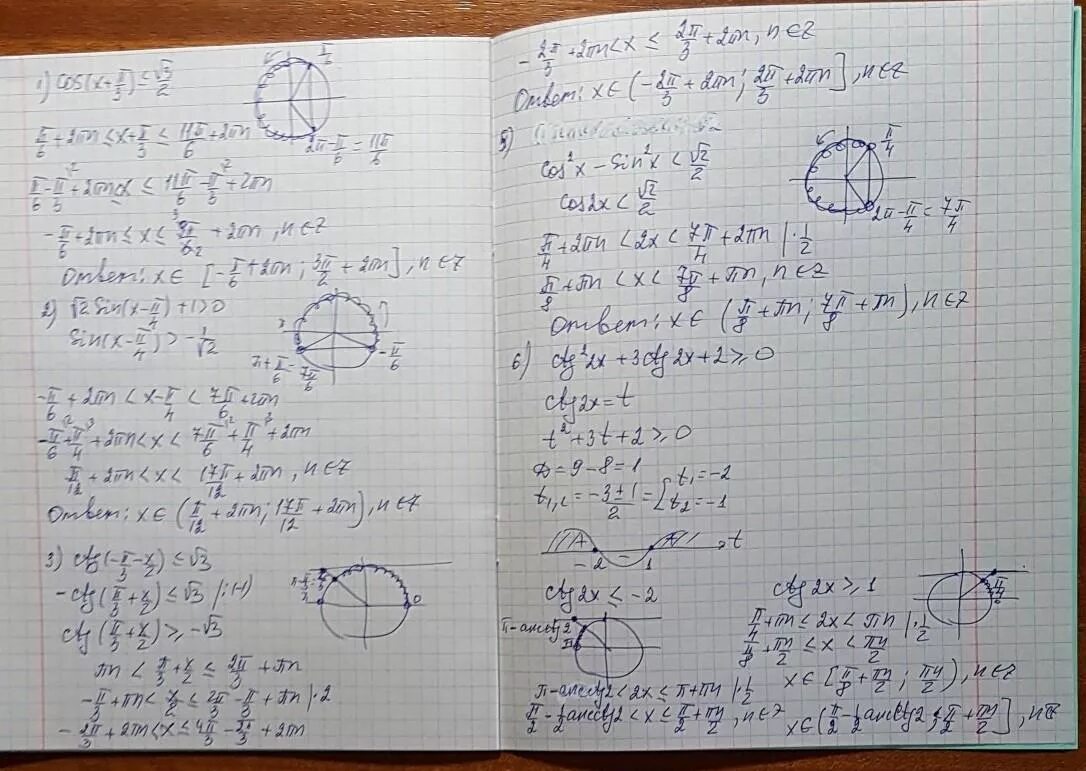 1) cos(x+π/3) ≤ √3/2
π/6
2π-π/6 = 11π/6
π/6 + 2πn ≤ x+π/3 ≤ 11π/6 + 2πn
π/6 - π/3 + 2πn ≤ x ≤ 11π/6 - π/3 + 2πn
-π/6 + 2πn ≤ x ≤ 9π/6 + 2πn, n∈Z
Ответ: x∈ [-π/6 + 2πn; 3π/2 + 2πn], n∈Z
2) √2 sin(x-π/4) + 1 > 0
sin(x-π/4) > -1/√2
π+π/6 = 7π/6
-π/6
-π/6 + 2πn < x-π/4 < 7π/6 + 2πn
-π/6 + π/4 + 2πn < x < 7π/6 + π/4 + 2πn
π/12 + 2πn < x < 17π/12 + 2πn, n∈Z
Ответ: x∈ (π/12 + 2πn; 17π/12 + 2πn), n∈Z
3) ctg(-π/3 - x/2) ≤ √3
-ctg(π/3 + x/2) ≤ √3 |:(-1)
ctg(π/3 + x/2) ≥ -√3
0
πn < π/3 + x/2 ≤ 2π/3 + πn
-π/3 + πn < x/2 ≤ 2π/3 - π/3 + πn |·2
-2π/3 + 2πn < x ≤ 4π/3 - 2π/3 + 2πn
-2π/3 + 2πn < x ≤ 2π/3 + 2πn, n∈Z
Ответ: x∈ (-2π/3 + 2πn; 2π/3 + 2πn], n∈Z
5)
cos²x - sin²x < √2/2
cos2x < √2/2
π/4
2π-π/4 = 7π/4
π/4 + 2πn < 2x < 7π/4 + 2πn |·1/2
π/8 + πn < x < 7π/8 + πn, n∈Z
Ответ: x∈ (π/8 + πn; 7π/8 + πn), n∈Z
6) ctg²2x + 3ctg2x + 2 ≥ 0
ctg2x = t
t² + 3t + 2 ≥ 0
D = 9-8 = 1
t₁,₂ = (-3±1)/2 = [t₁ = -2
t₂ = -1
-2 1 t
ctg2x ≤ -2
π-arcctg2
π
π-arcctg2 < 2x ≤ π+πn |·1/2
π/2 - 1/2 arcctg2 < x ≤ π/2 + πn/2, n∈Z
x∈ (π/2 - 1/2 arcctg2; π/2 + πn/2], n∈Z
ctg2x ≥ 1
π/4
π/4 + πn < 2x < πn |·1/2
π/8 + πn/2 ≤ x < πn/2
x∈ [π/8 + πn/2; πn/2), n∈Z